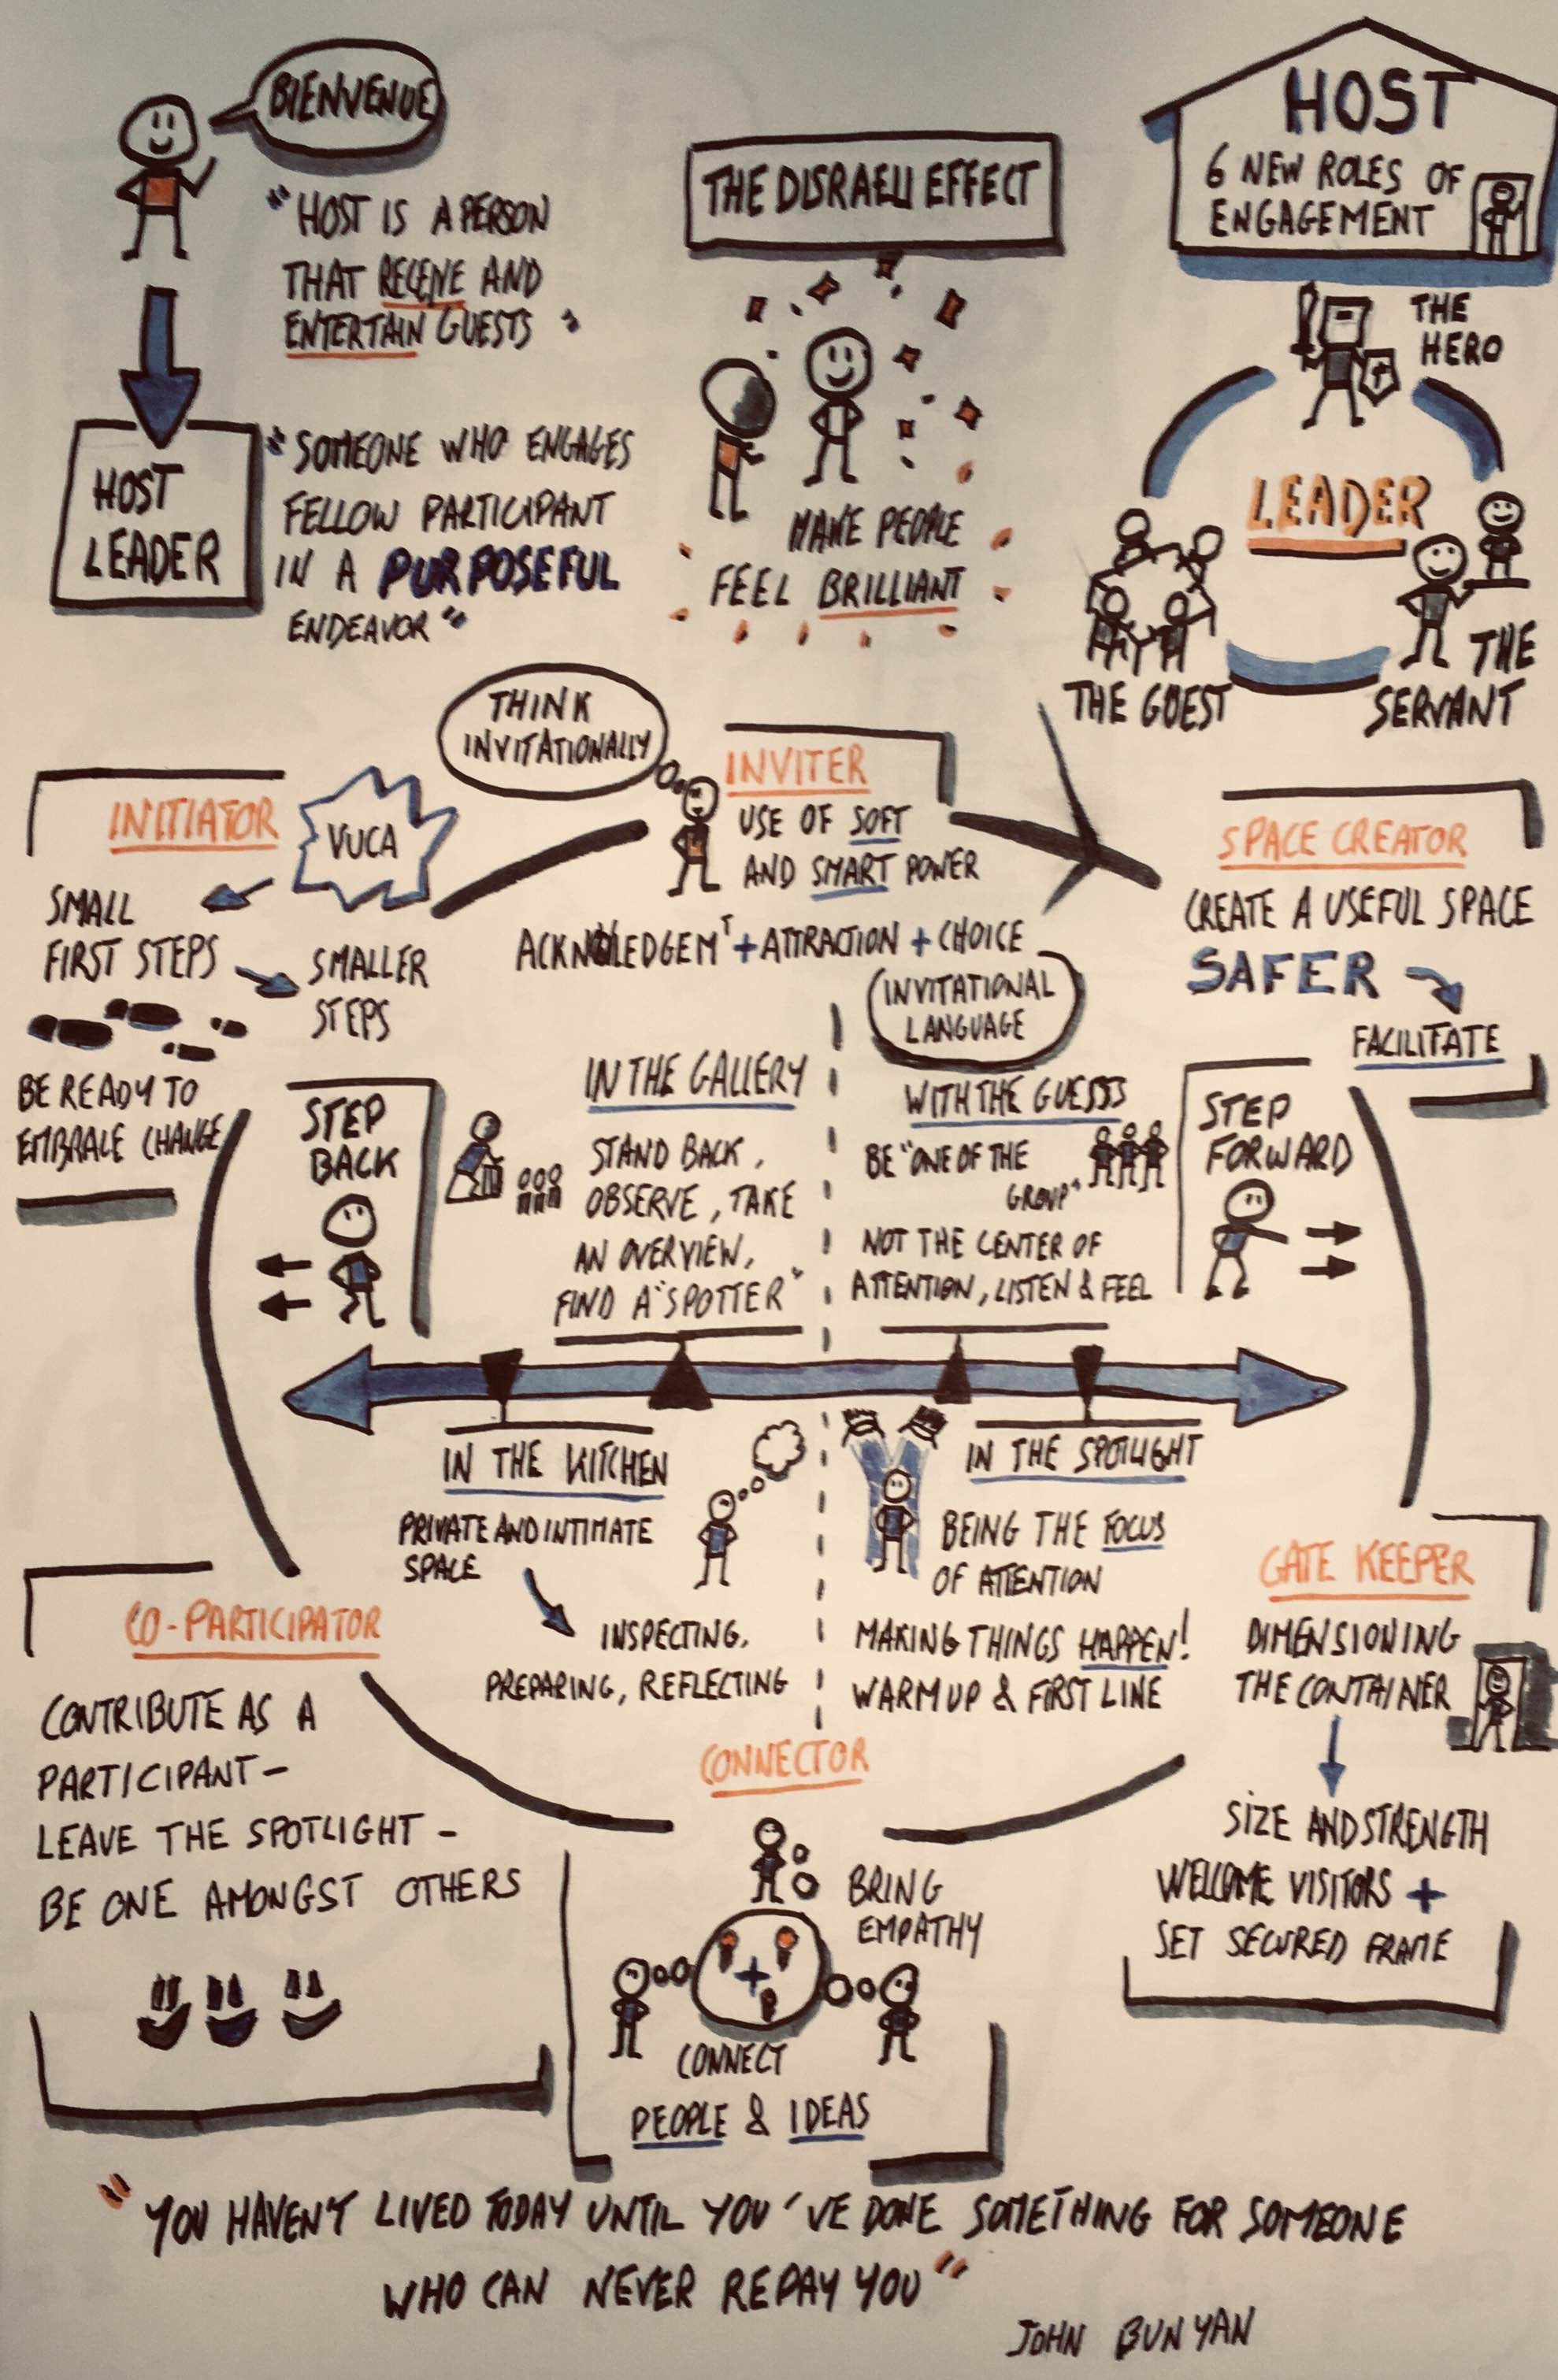 BIENVENUE
"HOST IS A PERSON
THAT RECEIVE AND
ENTERTAIN GUESTS"
HOST
LEADER
"SOMEONE WHO ENGAGES
FELLOW PARTICIPANT
IN A PURPOSEFUL
ENDEAVOR"
THE DISRAELI EFFECT
MAKE PEOPLE
FEEL BRILLIANT
HOST
6 NEW ROLES OF
ENGAGEMENT
THE
HERO
LEADER
THE GUEST
THE
SERVANT
THINK
INVITATIONALLY
INITIATOR
VUCA
SMALL
FIRST STEPS
SMALLER
STEPS
BE READY TO
EMBRALE CHANGE
INVITER
USE OF SOFT
AND SMART POWER
ACKNOWLEDGEMT + ATTRACTION + CHOICE
INVITATIONAL
LANGUAGE
SPACE CREATOR
CREATE A USEFUL SPACE
SAFER
FACILITATE
STEP
BACK
IN THE GALLERY
STAND BACK,
OBSERVE, TAKE
AN OVERVIEW,
FIND A "SPOTTER"
WITH THE GUESSS
BE "ONE OF THE
GROUP"
NOT THE CENTER OF
ATTENTION, LISTEN & FEEL
STEP
FORWARD
IN THE KITCHEN
PRIVATE AND INTIMATE
SPACE
INSPECTING,
PREPARING, REFLECTING
IN THE SPOTLIGHT
BEING THE FOCUS
OF ATTENTION
MAKING THINGS HAPPEN!
WARM UP & FIRST LINE
CO-PARTICIPATOR
CONTRIBUTE AS A
PARTICIPANT -
LEAVE THE SPOTLIGHT -
BE ONE AMONGST OTHERS
CONNECTOR
BRING
EMPATHY
CONNECT
PEOPLE & IDEAS
GATE KEEPER
DIMENSIONING
THE CONTAINER
SIZE AND STRENGTH
WELCOME VISITORS +
SET SECURED FRAME
"YOU HAVEN'T LIVED TODAY UNTIL YOU'VE DONE SOMETHING FOR SOMEONE
WHO CAN NEVER REPAY YOU"
JOHN BUNYAN